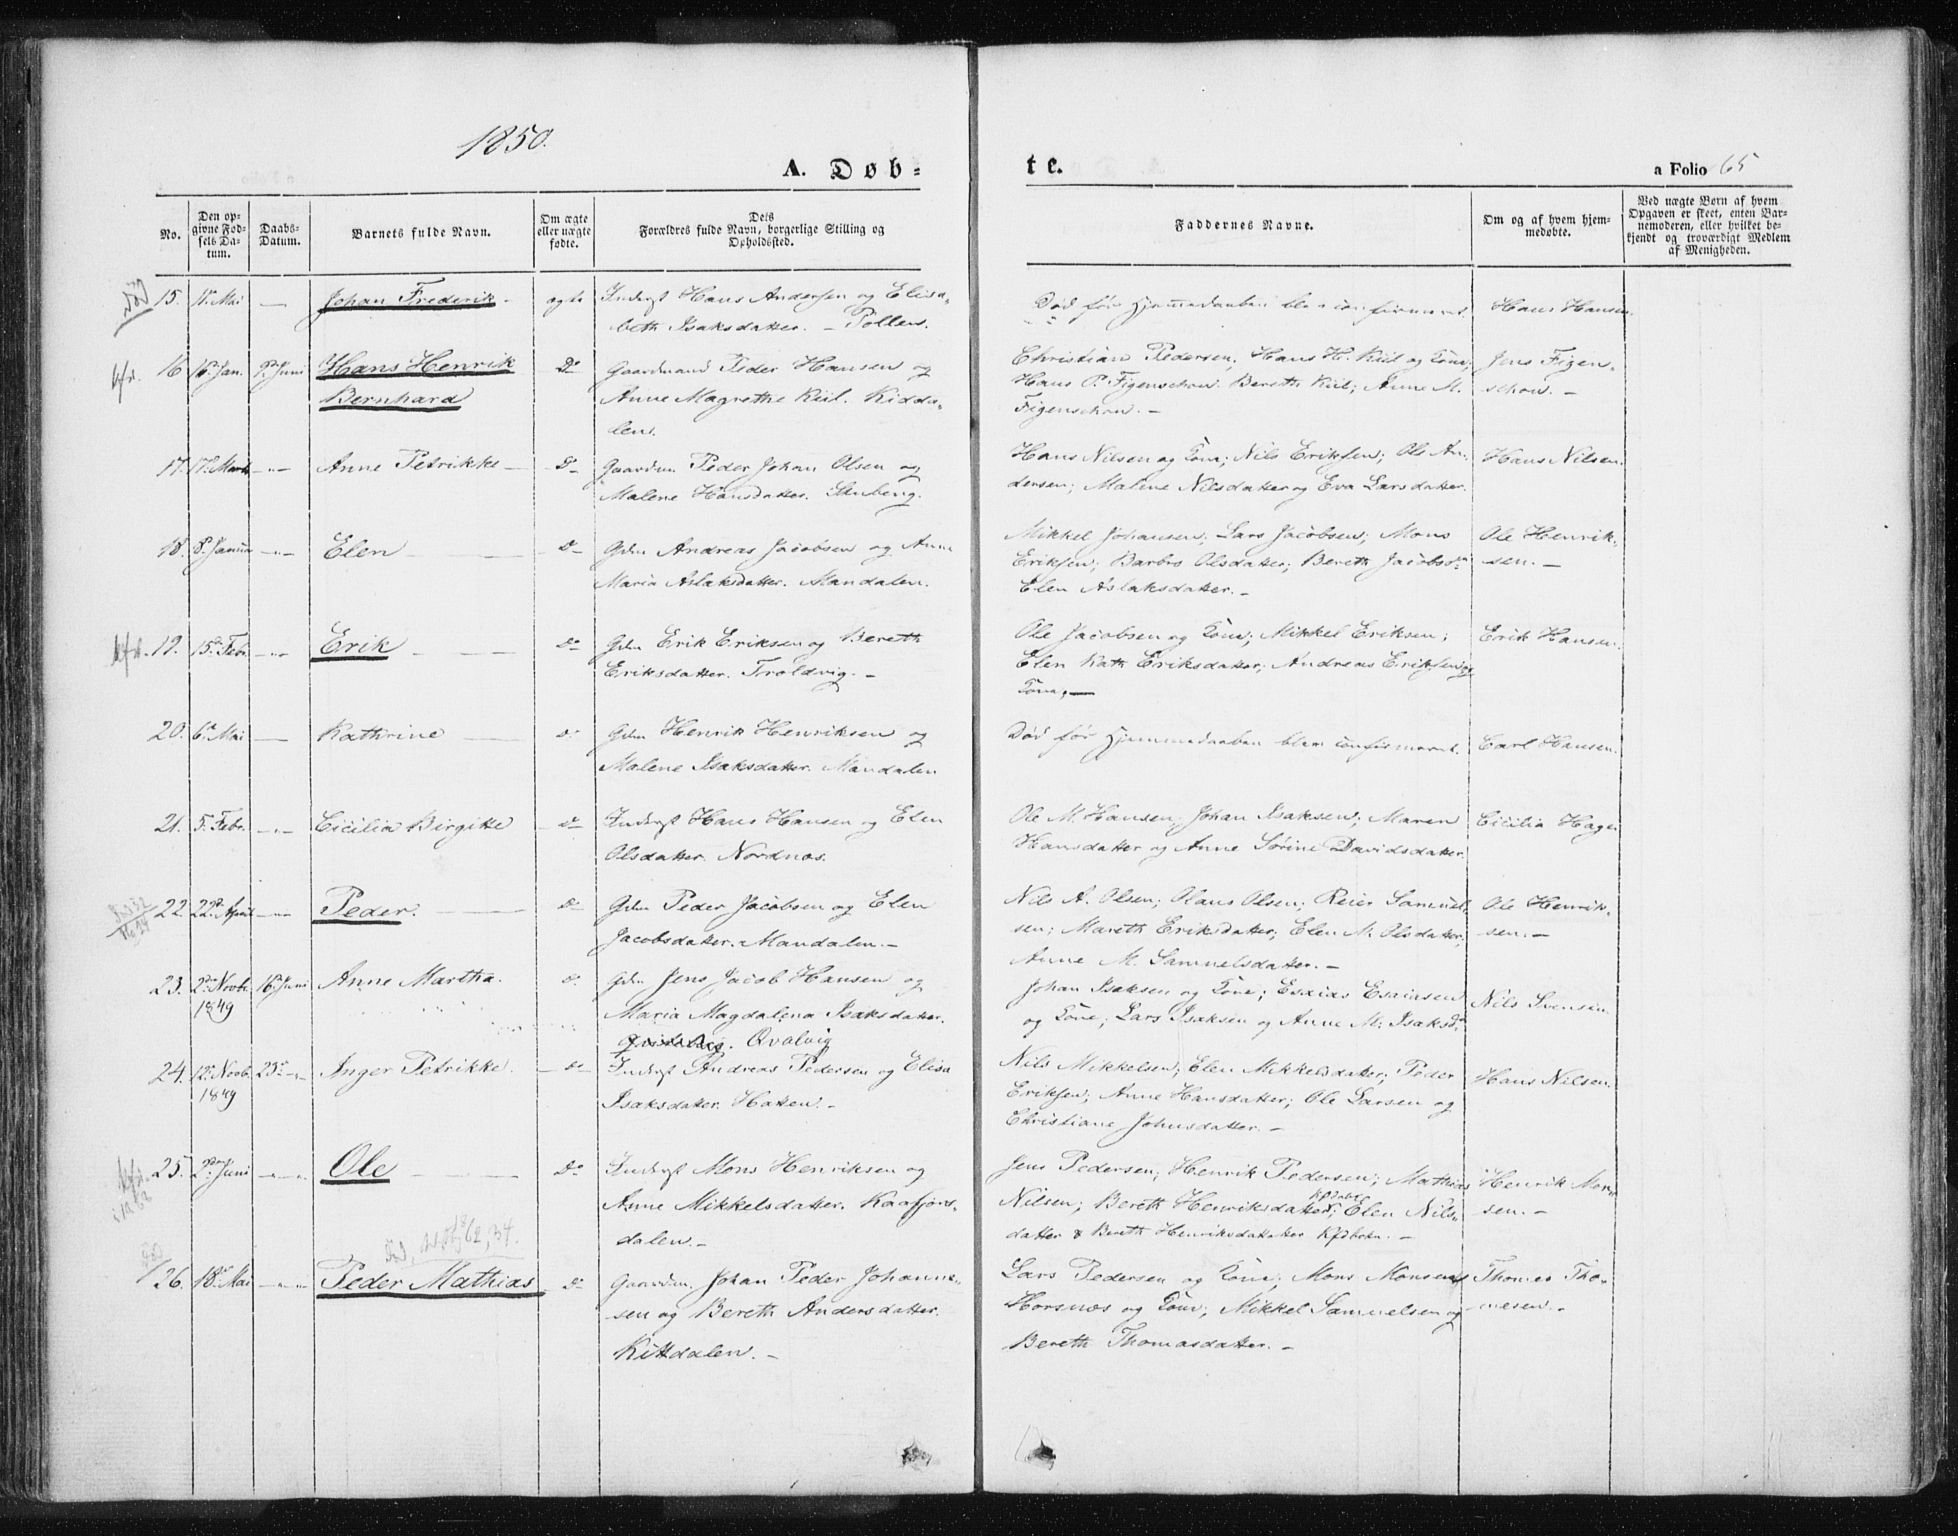 1850.
A. Døb-
te.
a Folio 65
No.
Den op-
givne Fød-
sels Da-
tum.
Daabs-
Datum.
Barnets fulde Navn.
Om ægte
eller uægte
fødte.
Dets
Forældres fulde Navn, borgerlige Stilling og
Opholdssted.
Faddernes Navne.
Om og af hvem hjem-
medøbte.
Ved uægte Børn af hvem
Opgaven er skeet, enten Bar-
nemoderen, eller hvilket be-
kjendt og troværdigt Medlem
af Menigheden.
død 15. Mai — Johan Frederik - ægte Inderst Hans Andersen og Elisa-
beth Isaksdatter. - Pollen.
Død før Hjemmedaaben blev confirmeret Hans Hansen
16 16de Jan. 9de Juni Hans Henrik
Bernhard Do Gaardmand Peder Hansen og
Anne Magrethe Kiil. Kidda-
len.
Christian Pedersen, Hans H. Kiil og Kone;
Hans P. Figenschou. Bereth Kiil; Anne M.
Figenschou. -
Jens Figen-
schou. -
17. 17de Marts -"- Anne Petrikke - Do Gaardm. Peder Johan Olsen og
Malene Hansdatter. Skuberg.
Hans Nilsen og Kone; Nils Eriksen; Ole An-
dersen; Malene Nilsdatter og Eva Larsdatter.
Hans Nilsen.
18. 8de Januar -"- Elen - Do Gdm Andreas Jacobsen og Anne
Maria Aslaksdatter. Mandalen.
Mikkel Johansen; Lars Jacobsen; Mons
Eriksen; Barbro Olsdatter; Bereth Jacobsdr
Elen Aslaksdatter. -
Ole Henrik-
sen. -
19. 15de Febr. -"- Erik - Do Gdm Erik Eriksen og Bereth
Eriksdatter. Troldvig. -
Ole Jacobsen og Kone; Mikkel Eriksen;
Elen Kath Eriksdatter; Andreas Eriksen og
Kone. —
Erik Hansen.
20. 6te Mai — Kathrine - Do Gdm Henrik Henriksen og
Malene Isaksdatter. Mandalen
Død før Hjemmedaaben blev confirmeret. Carl Hansen.
21. 5. Febr. -"- Cicilia Birgitte - Do Inderst Hans Hansen og Elen
Olsdatter. Nordnæs.
Ole M. Hansen; Johan Isaksen; Maren
Hansdatter og Anne Sörine Davidsdatter.
Cicilia Hagen
22. 22de April -"- Peder. - Do Gdm Peder Jacobsen og Elen
Jacobsdatter. Mandalen. -
Nils A. Olsen; Olaus Olsen; Reier Samuel-
sen; Mareth Eriksdatter; Elen M. Olsdatter,
Anne M. Samuelsdatter. -
Ole Henrik-
sen. -
23. 2den Novbr. 16de Juni Anne Martha. Do Gdm Jens Jacob Hansen og
1849
Maria Magdalena Isaksdatter.
Qvalvig
Johan Isaksen og Kone; Esaias Esaiasen
og Kone; Lars Isaksen og Anne M. Isaksdr
Nils Svensen.
24. 12te Novb. 23de -"- Inger Petrikke. - Do Inderst Andreas Pedersen og Elisa
1849
Isaksdatter. Hatten. -
Nils Mikkelsen; Elen Mikkelsdatter; Peder
Eriksen; Anne Hansdatter; Ole Larsen og
Christiane Johnsdatter. -
Hans Nilsen.
25. 2den Juni -"- Ole - Do Inderst Mons Henriksen og
Anne Mikkelsdatter. Kaafjors-
dalen. -
Jens Pedersen; Henrik Pedersen; Mathias
Nilsen; Bereth Henriksdatter; Elen Nils-
datter & Bereth Henriksdatter
Henrik Mon-
sen. -
26. 18de Mai -"- Peder Mathias Do Gaardm. Johan Peder Johanne-
sen og Bereth Andersdatter.
Kittdalen. -
Lars Pedersen og Kone; Mons Monsen
Horsnæs og Kone; Mikkel Samuelsen og
Bereth Thomasdatter. -
Thomas Tho-
mesen. -